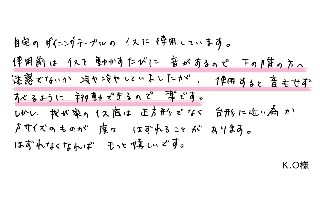 自宅のダイニングテーブルのイスに使用しています。
使用前はイスを動かすたびに音がするので下の階の方へ
迷惑でないか冷や冷やしていましたが、使用すると音もせず
すべるように移動できるので楽です。
しかし、我が家のイス底は正方形でなく台形に近い為か
Sサイズのものが度々はずれることがあります。
はずれなくなればもっと嬉しいです。
K.O様